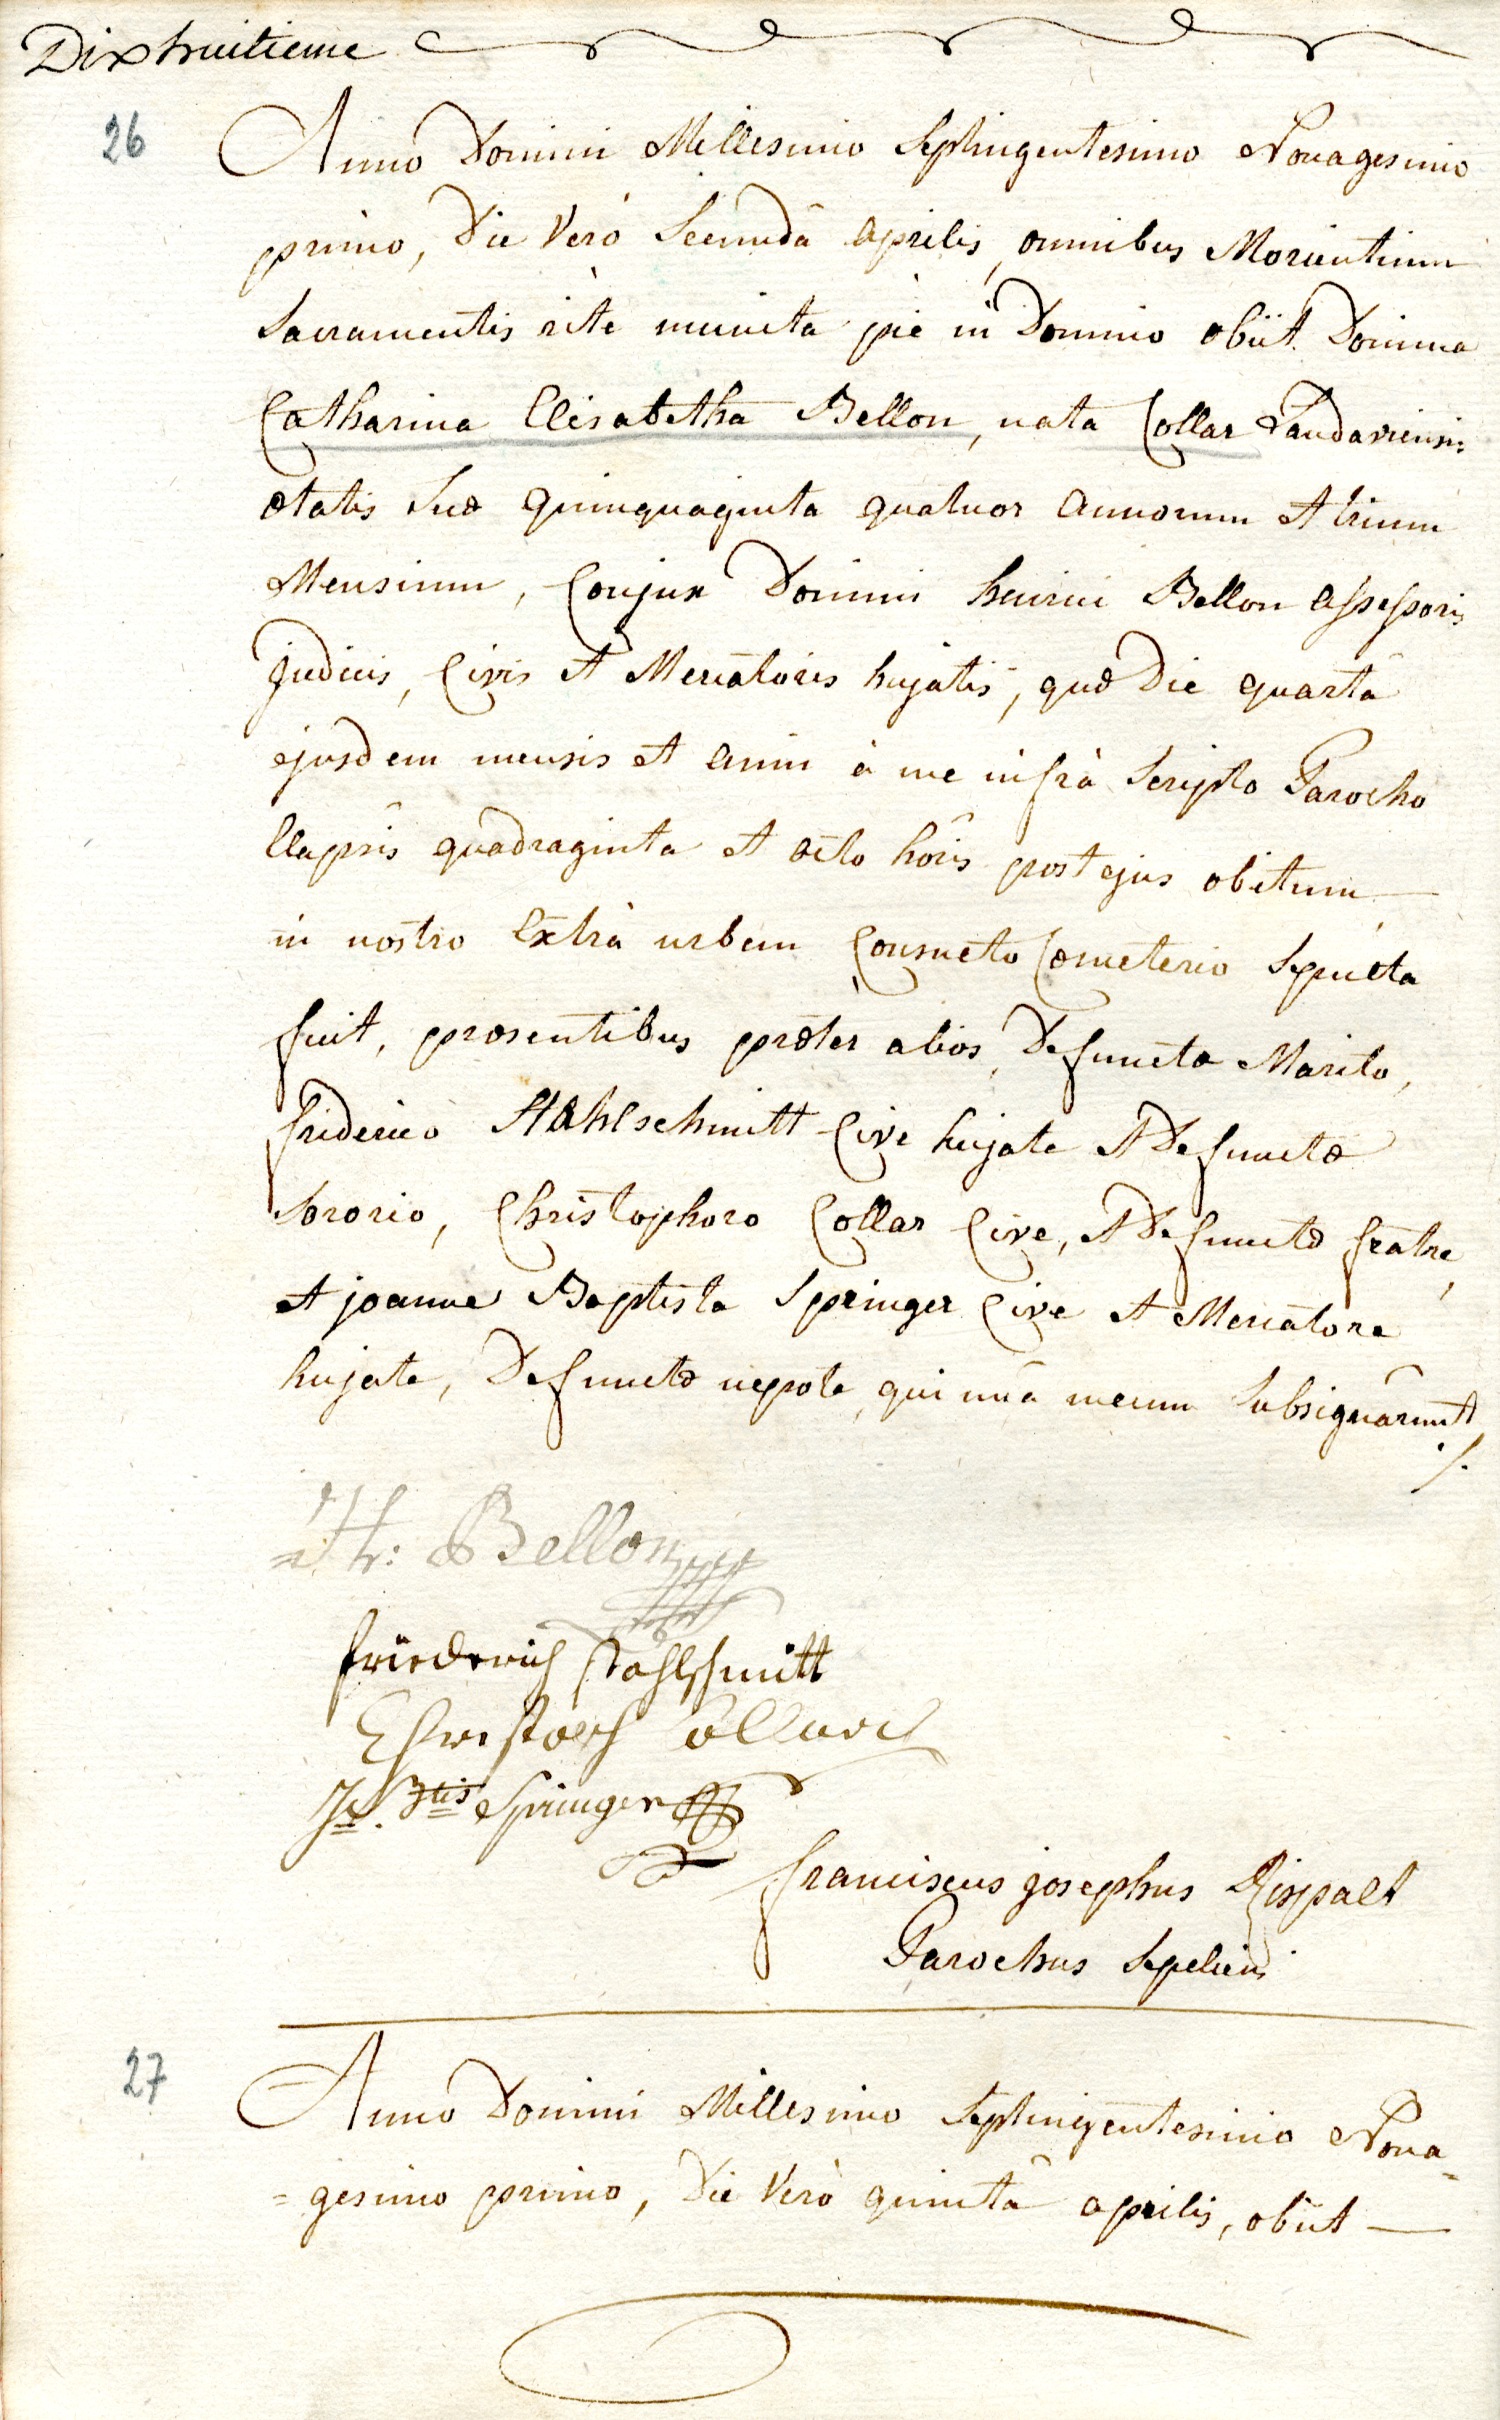 Dixhuitieme
26
Anno Domini Millesimo Septingentesimo Nonagesimo
primo, Die Verò Secundâ Aprilis, omnibus Morientium
Sacramentis ritè munita piè in Domino obiit Domina
Catharina Elisabetha Bellon, nata Collar Landaviensis
ætatis Suæ quinquaginta quatuor annorum et trium
Mensium, Conjux Domini henrici Bellon assessoris
judicii, Civis et Mercatoris hujatis, quæ Die quartâ
ejusdem mensis et anni à me infrà Scripto Parocho
Elapsis quadraginta et octo horis post ejus obitum
in nostro Extrà urbem Consueto Cœmeterio Sepulta
fuit, præsentibus præter alios, Defunctæ Marito,
friderico Stahlschmitt Cive hujate et Defunctæ
Sororio, Christophoro Collar Cive, et Defunctæ fratre,
et joanne Baptista Springer Cive et Mercatore
hujate, Defunctæ nepote, qui unà mecum Subsignârunt
./.
Hr: Bellon
friederich stahlschmitt
Christoph Collar
Jh. Btis Springer
franciscus josephus Rispalt
Parochus Sepeliens
27
Anno Domini Millesimo Septingentesimo Nona=
=gesimo primo, Die Verò quintâ aprilis, obiit